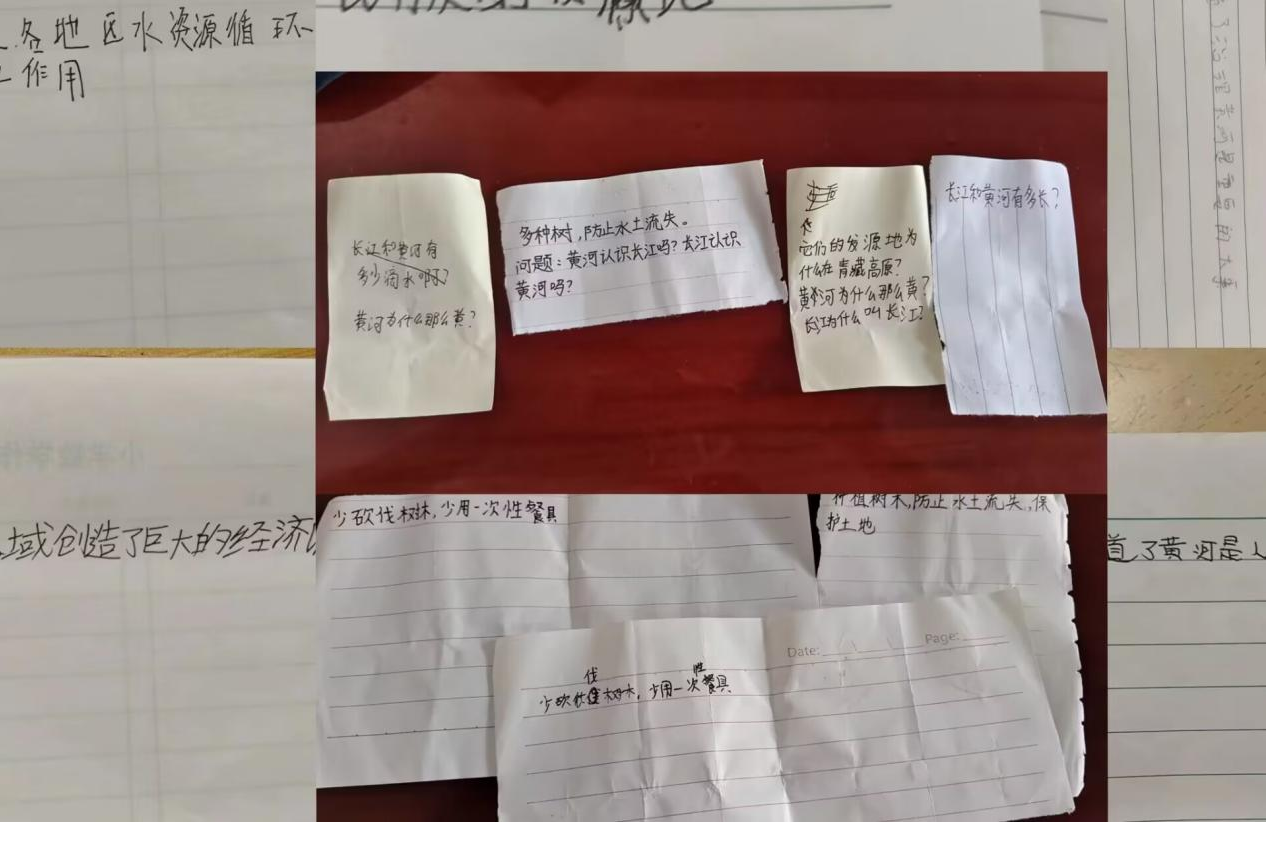 各地区水资源循环
作用
长江和黄河有
多少滴水啊?
黄河为什么那么黄?
多种树,防止水土流失。
问题:黄河认识长江吗?长江认识
黄河吗?
它们的发源地为
什么在青藏高原?
黄河为什么那么黄?
长江为什么叫长江?
长江和黄河有多长?
域创造了巨大的经济
少砍伐树林,少用一次性餐具
价植树木,防止水土流失,保
护土地
Date: Page:
伐 性
少砍伐树木,少用一次餐具
道了黄河是